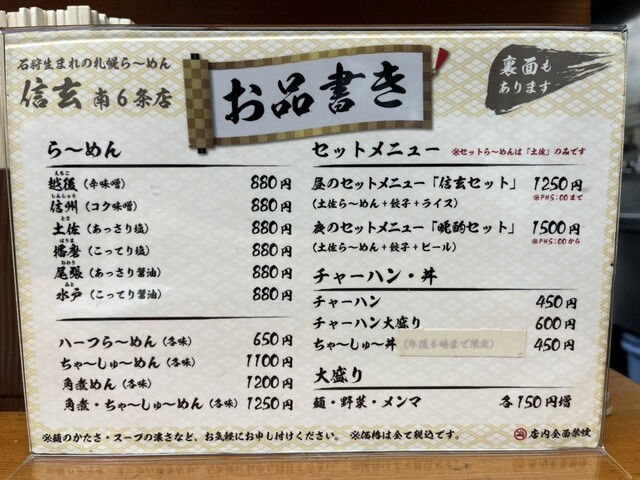 石狩生まれの札幌ら〜めん
信玄 南6条店
お品書き
裏面も
あります
ら〜めん
えちご
越後（辛味噌） 880円
しんしゅう
信州（コク味噌） 880円
とさ
土佐（あっさり塩） 880円
はりま
播磨（こってり塩） 880円
おわり
尾張（あっさり醤油） 880円
みと
水戸（こってり醤油） 880円
ハーフら〜めん（各味） 650円
ちゃ〜しゅ〜めん（各味） 1100円
角煮めん（各味） 1200円
角煮・ちゃ〜しゅ〜めん（各味） 1250円
セットメニュー ※セットら〜めんは「土佐」のみです
昼のセットメニュー「信玄セット」 1250円
（土佐ら〜めん＋餃子＋ライス） ※PM5:00まで
夜のセットメニュー「晩酌セット」 1500円
（土佐ら〜めん＋餃子＋ビール） ※PM5:00から
チャーハン・丼
チャーハン 450円
チャーハン大盛り 600円
ちゃ〜しゅ〜丼（午後6時まで限定） 450円
大盛り
麺・野菜・メンマ 各150円増
※麺のかたさ・スープの濃さなど、お気軽にお申し付けください。 ※価格は全て税込です。
店内全面禁煙